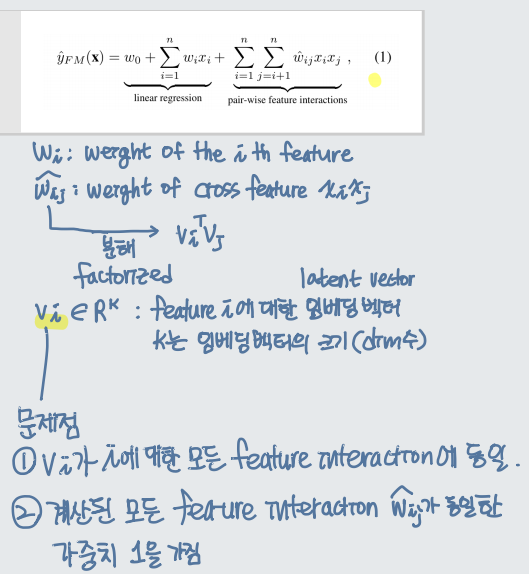 ŷ_FM(x) = w_0 + ∑_{i=1}^{n} w_i x_i + ∑_{i=1}^{n} ∑_{j=i+1}^{n} ŵ_ij x_i x_j , (1)
linear regression pair-wise feature interactions
w_i : weight of the i th feature
ŵ_ij : weight of cross feature x_i x_j
분해 → v_i^T v_j
factorized latent vector
v_i ∈ R^K : feature i에 대한 임베딩 벡터
K는 임베딩벡터의 크기(dim수)
문제점
① v_i가 i에 대한 모든 feature interaction에 동일.
② 계산된 모든 feature interaction ŵ_ij가 동일한
가중치 1을 가짐